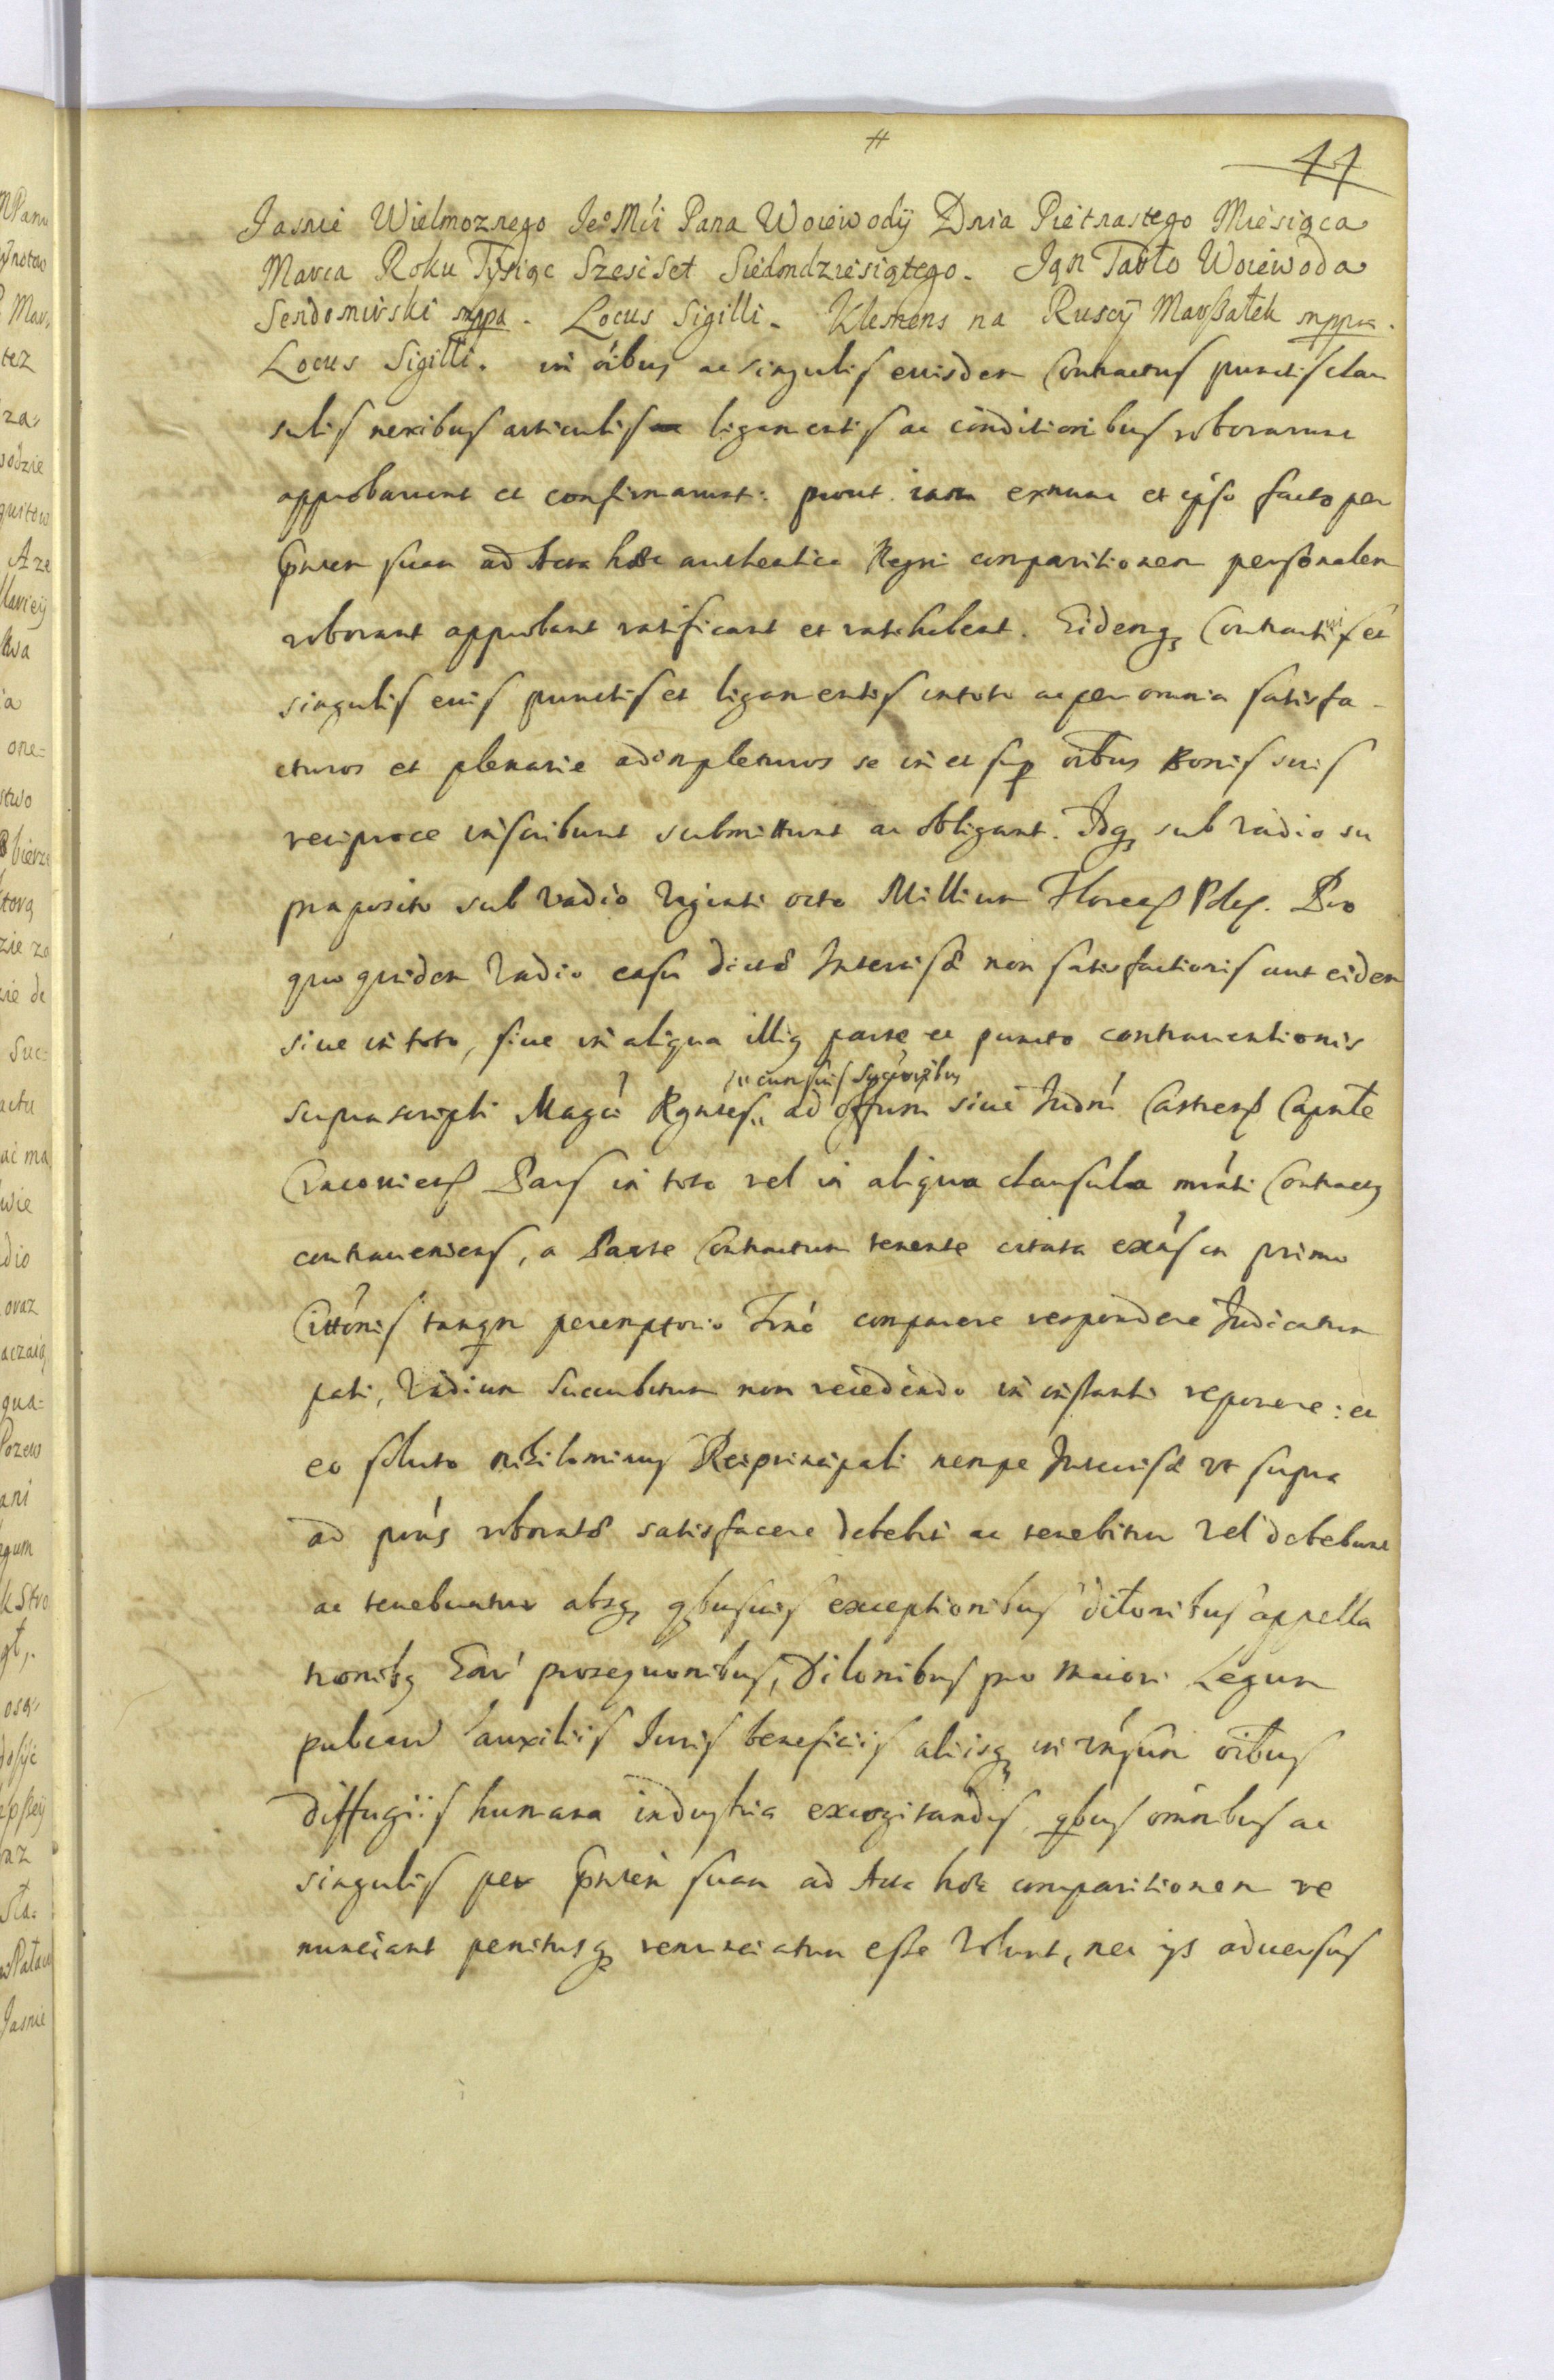 #
11
Jasnie Wielmoznego Jeo Mći Pana Woiewody Dnia Pietnastego Miesiąca
Marca Roku Tysiąc Szescset Siedmdziesiątego. Jan Tarło Woiewoda
Sendomirski mppa. Locus Sigilli. Klemens na Ruscy Marszałek mppa.
Locus Sigilli. in oībus ac singulis eiusdem Contractus punctis clau
sulis nexibus articulis ligamentis ac conditionibus roborarunt
approbarunt et confirmarunt: prout exnunc et ipso facto per
pñtem suam ad Acta haec authentica Regni comparitionem personalem
roborant approbant ratificant et ratihabent. Eidemq Contractui et
singulis eius punctis et ligamentis in toto ac per omnia satisfa-
cturos et plenarie adimpleturos se in et sup oībus Bonis suis
reciproce inscribunt submittunt ac obligant. Idq sub vadio su
praposito sub vadio Viginti octo Millium Floren Pol. Pro
quo quidem Vadio casu dictae Intercisae non satisfactionis aut eidem
siue in toto, siue in aliqua illius parte et puncto contrauentionis
suprascripti Magci Rgntes ad Offum siue Judm Castren Capnte
cum suis Successoribus
Cracovien Pars in toto vel in aliqua clausula mrati Contractus
contraueniens, a Parte Contractum tenente citata exns in primo
Cittonis tanqm peremptorio Trno comparere respondere Judicatum
pati, Vadium Succubitum non recedendo in instanti reponere: et
eo soluto nihilominus Rei principali nempe Intercisae ut supra
ad prns roboratae satisfacere debebit ac tenebitur vel debebunt
ac tenebuntur absq qbusuis exceptionibus dilonibus appella
tionibq Ear prosequonibus, Dilonibus pro maiori Legum
publicar auxiliis Juris beneficiis aliisq in vnsum oībus
diffugiis humana industria excogitandis qbus omnibus ac
singulis per pntem suam ad Acta haec comparitionem re
nunciant penitusq renunciatum esse Volunt, nec ijs aduersus